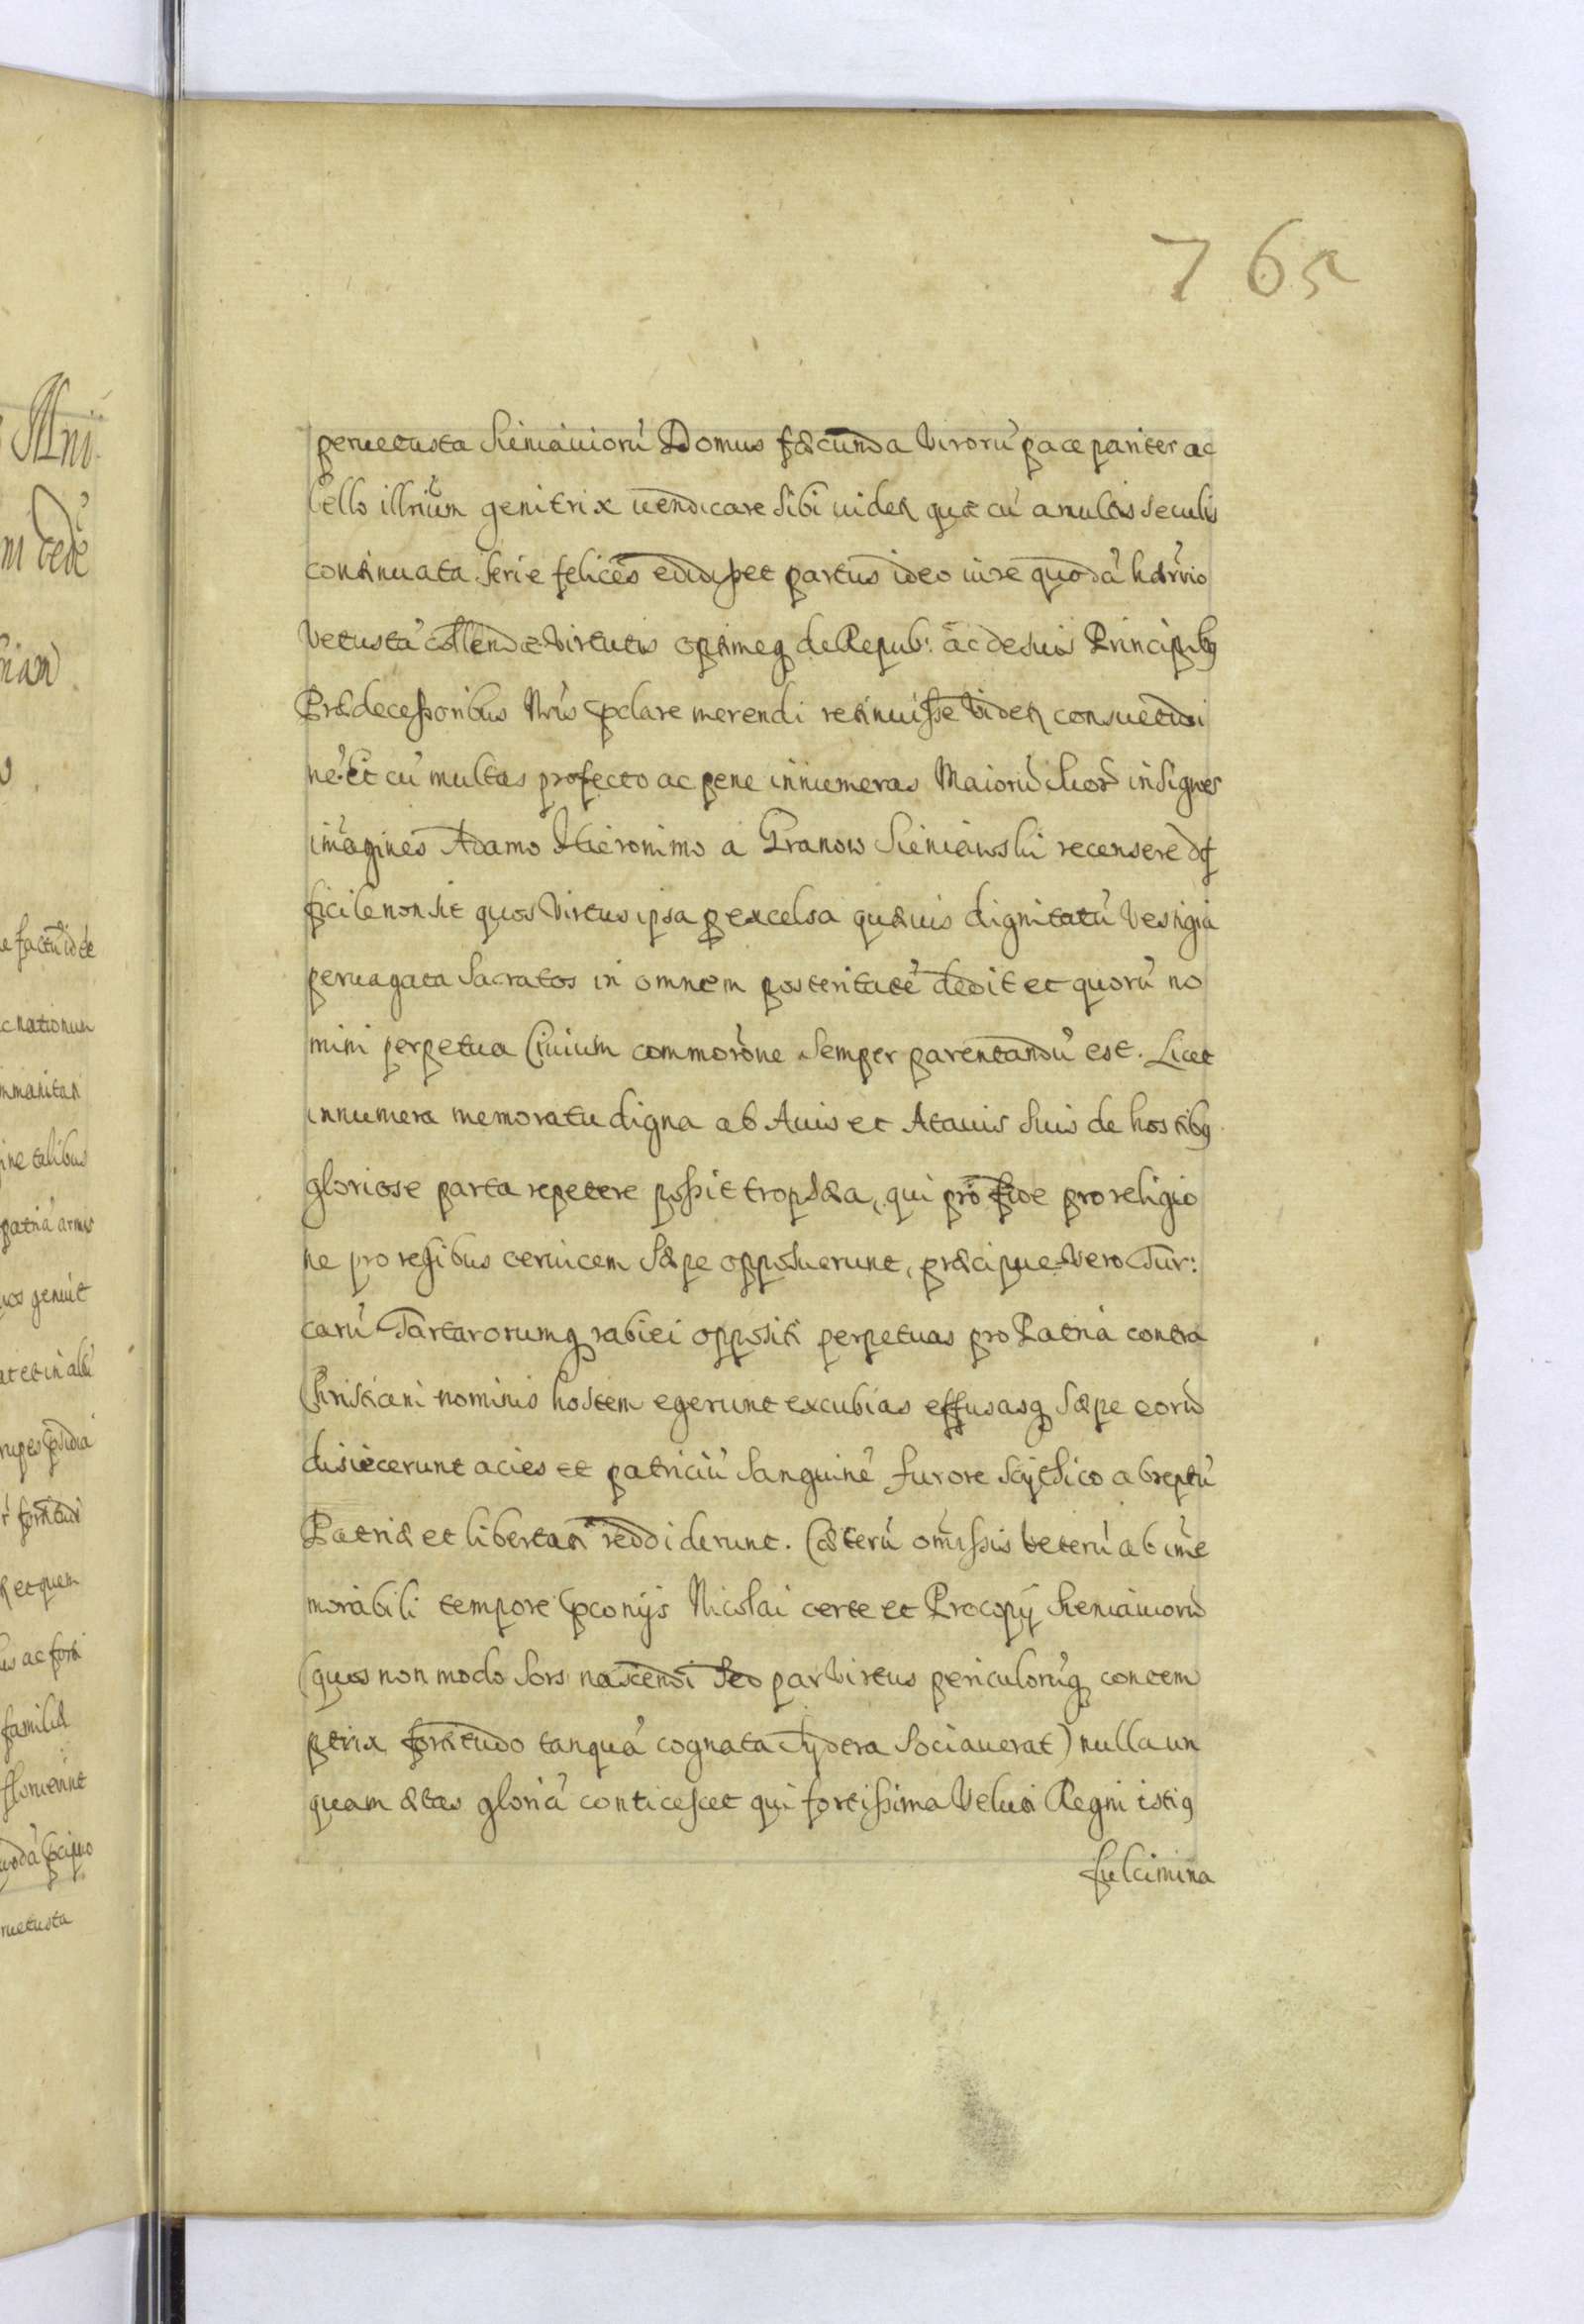 765
peruetusta Sieniauiorú Domus fæcunda Virorú pace pariter ac
bello illriũm genitrix uendicare sibi uidet̃ quæ cú a multis seculis
continuata serie felices edidisset partus ideo iure quodá hærrio
Vetustá collendæ Virtutis optimeq̃ de Repub: ac de suis Principib9
Prædecessoribus Nr̃is p̃clare merendi retinuisse Videt̃ consuetudi
né. Et cú multas profecto ac pene innumeras Maiorú suor̃ insignes
imagines Adamo Hieronimo a Granow Sieniawski recensere dif
ficile non sit quos Virtus ipsa p excelsa quæuis dignitatú Vestigia
peruagata sacratos in omnem posteritaté dedit et quorú no
mini perpetua Ciuium commorõne semper parentandú est. Licet
innumera memoratu digna ab Auis et Atauis suis de hostib9
gloriose parta repetere possit trophæa, qui pro fide pro religio
ne pro regibus ceruicem sæpe opposuerunt, præcipue Vero Tur:
carú Tartarorumq̃ rabiei oppositi perpetuas pro Patria contra
Christiani nominis hostem egerunt excubias effusasq̃ sæpe eorú
disiecerunt acies et patriciú sanguiné furore Scythico abreptú
Patriæ et libertati reddiderunt. Cæterú omissis veterú ab im̃e
morabili tempore p̃conijs Nicolai certe et Procopij Sieniauiorú
(quos non modo sors nascendi sed par Virtus periculorúq̃ contem
ptrix fortitudo tanquá cognata Sydera sociauerat) nulla un
quam ætas gloriá conticescet qui fortissima Veluti Regni isti9
fulcimina